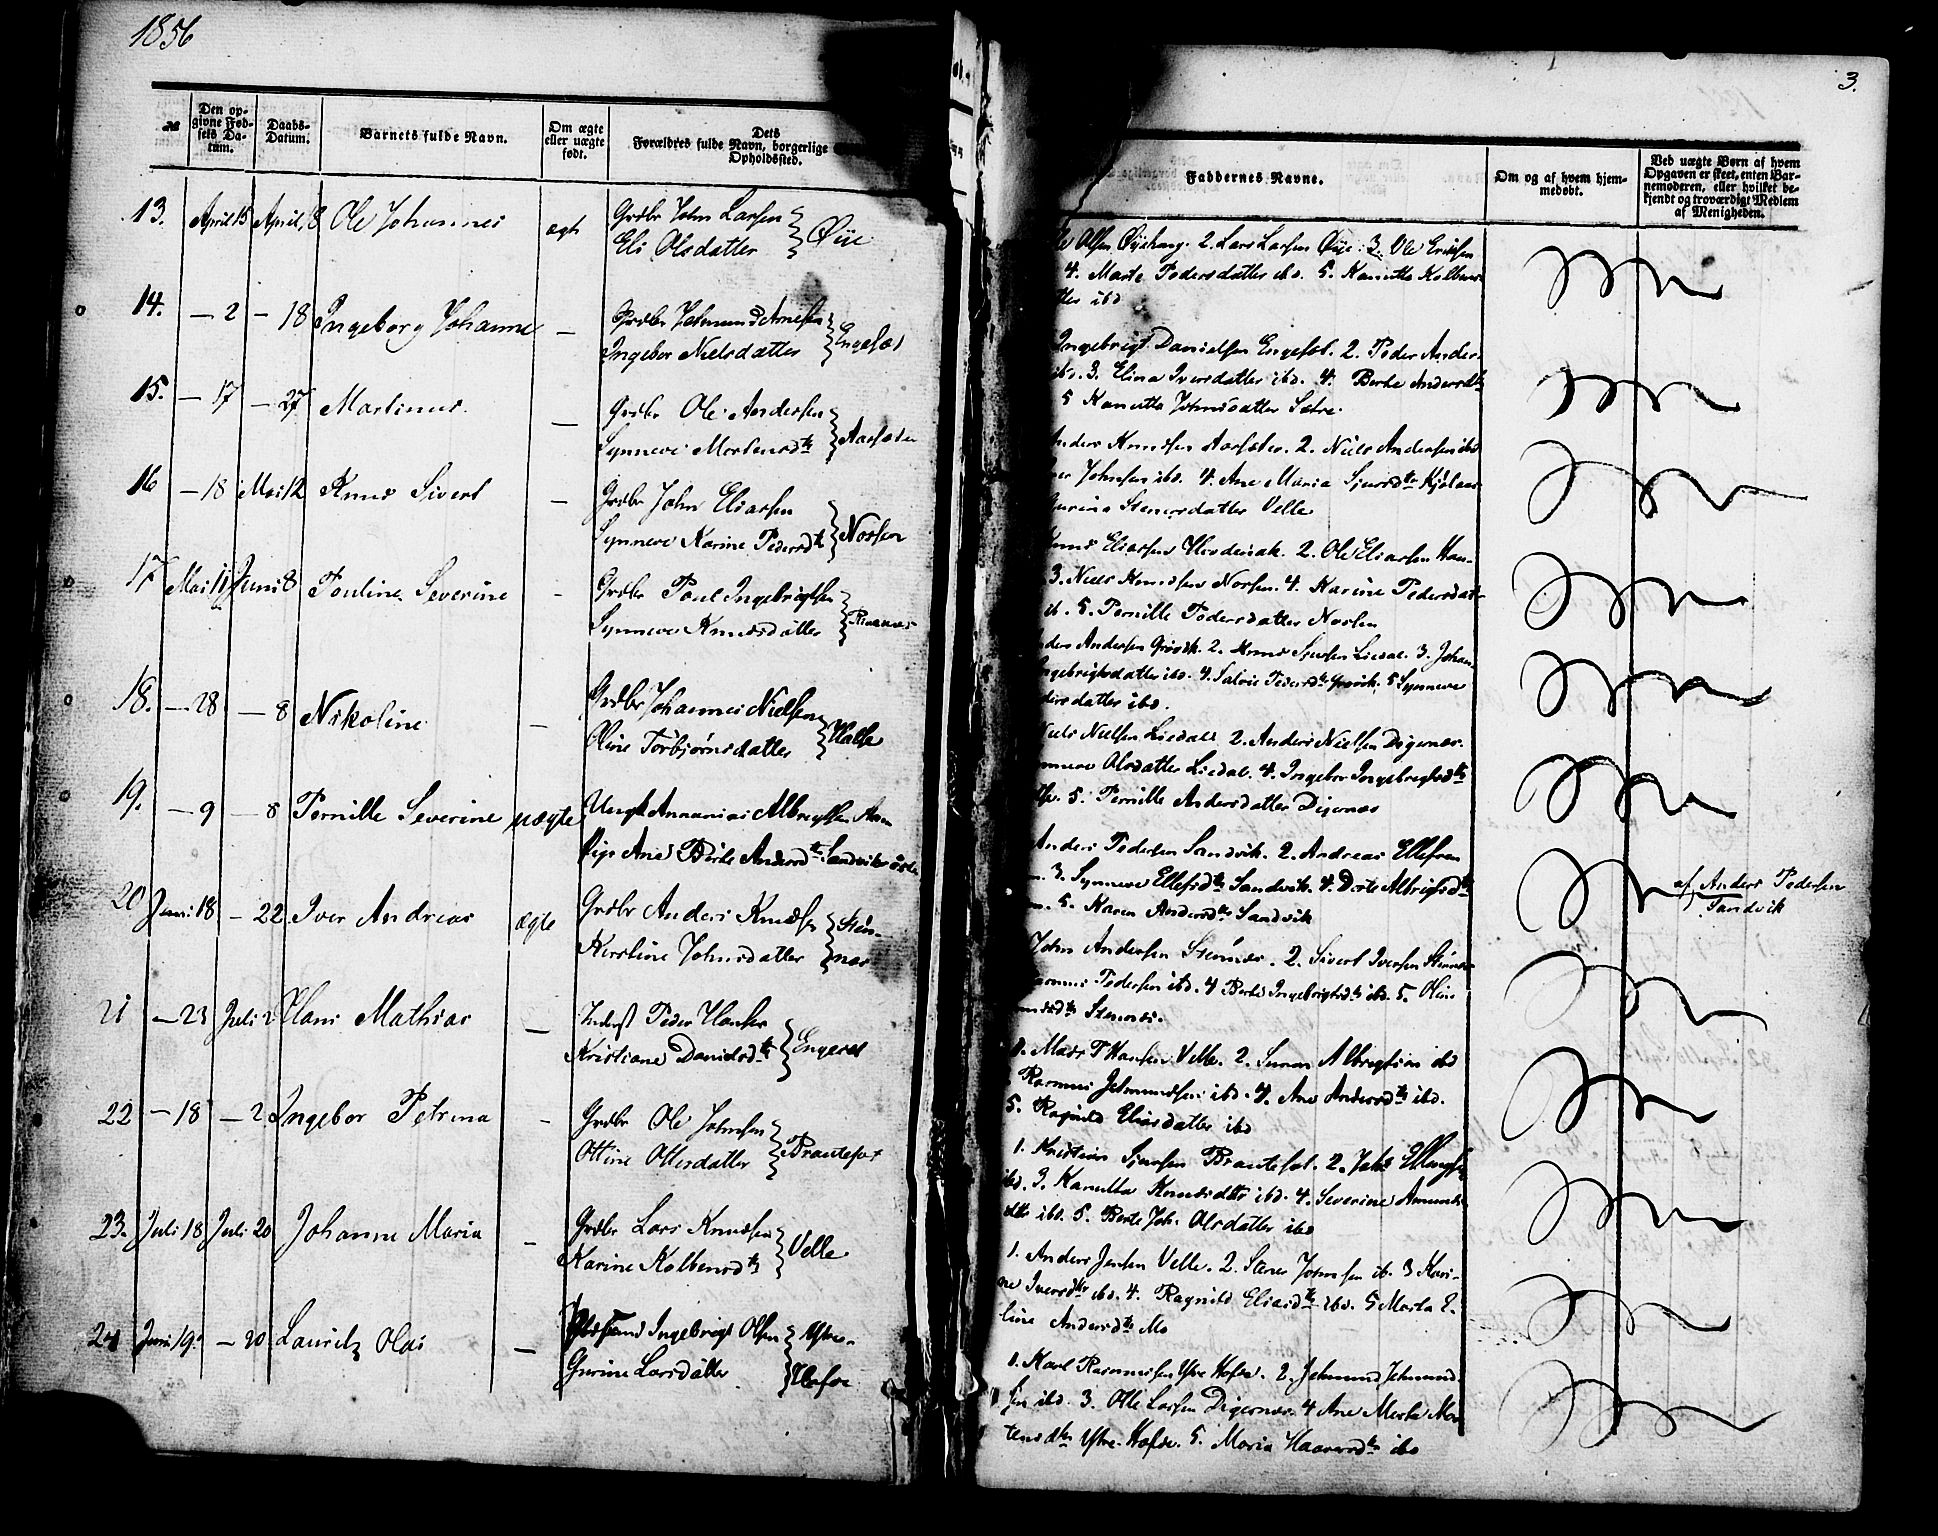 1856
3.
№
Den op-
givne Fød-
sels Da-
tum.
Daabs-
Datum.
Barnets fulde Navn.
Om ægte
eller uægte
født.
Dets
Forældres fulde Navn, borgerlige
Opholdssted.
Faddernes Navne.
Om og af hvem hjem-
medøbt.
Ved uægte Børn af hvem
Opgaven er skeet, enten Bar-
nemoderen, eller hvilket be-
kjendt og troværdigt Medlem
af Menigheden.
13. April 15 April 18 Ole Johannes ægt Grdbr John Larsen
Eli Olsdatter } Øie
Olsen Øyehaug. 2. Lars Larsen Øie. 3. Ole Eriksen
4. Marte Pedersdatter ibd. 5. Kanutta Kolbens
ibd
14. — 2 — 18 Ingeborg Johanne — Grdbr Jetmund Arnesen
Ingebor Nielsdatter } Engesæt
Ingebrigt Danielsen Engesæt. 2. Peder Anders
ibd. 3. Elina Iversdatter ibd. 4. Berte Andersdtr
5 Kanutta Johnsdatter Sætre.
15. — 17 — 27 Martinus. — Grdbr Ole Andersen
Synneve Mortensdtr } Aarsæter
Anders Knudsen Aarsæter. 2. Niels Andersen ibd
Johnsen ibd. 4. Ane Maria Sjursdtr
Gurina Stenersdatter Velle
16 — 18 Mai 12 Knud Sivert — Grdbr John Eliassen
Synneve Karine Pedersdtr } Nossen
Knud Eliassen 2. Ole Eliassen
3. Niels Knudsen Nossen. 4. Karine Pedersdat-
5. Pernille Pedersdatter Nossen
17 Mai 11 Juni 8 Pauline Severine — Grdbr Poul Ingebrigtsen
Synneve Knudsdatter }
Anders Andersen Grøvik. 2. Knud Sjursen Liedal. 3. Johan
Ingebrigtsdatter ibd. 4. Salvie Pedersdtr Grøvik. 5 Synneve
dersdatter ibd.
18. — 28 — 8 Nikoline — Grdbr Johannes Nielsen
Oline Torbjørnsdatter }
Niels Nielsen Liedal 2. Anders Nielsen Digernæs.
Olsdatter Liedal. 4. Ingebor Ingebrigtsdtr
5. Pernille Andersdatter Digernæs
19. — 9 — 8 Pernille Severine uægte Ungk Annanias Albrigtsen
Pige Ane Berte Andersdtr Sandvik
Anders Pedersen Sandvik. 2. Andreas Ellefsen
3. Synneve Ellefsdtr Sandvik. 4. Dorte Albrigtsdtr
5. Karen Andersdtr Sandvik
af Anders Pedersen
Sandvik
20 Juni 18 — 22 Iver Andreas ægte Grdbr Anders Knudsen
Kirstine Johnsdatter } Sten-
næs
John Andersen Stennæs. 2. Sivert Iversen Stennæs
Pedersen ibd. 4 Berte Ingebrigtsdtr ibd. 5. Oline
Stennæs.
21 — 23 Juli 2 Hans Mathias — Inderst Peder Hansen
Kristiane Danielsdtr } Engeset
1. Mads Hansen Velle. 2. Simon Albregtsen ibd
Rasmus Jetmundsen ibd. 4. Ane Andersdtr ibd.
5. Ragnild Eliasdatter ibd
22 — 18 — 2 Ingebor Petrina — Grdbr Ole Johnsen
Ottine Ottersdatter } Brautesæt
1. Kristian Sjursen Brautesæt. 2. Ellingsen
ibd. 3. Kanutta Knudsdtr ibd. 4. Severine
ibd. 5. Berte Joh. Olsdatter ibd
23. Juli 18 Juli 20 Johanne Maria — Grdbr Lars Knudsen
Karine Kolbensdtr } Velle
1. Anders Jensen Velle. 2. Stener Johnsen ib. 3 Kari-
ne Iversdtr ibd. 4. Ragnild Eliasdtr ibd. 5 Marta E-
line Andersdtr Mo
24 Juni 19. — 20 Lauritz Olai — Ingebrigt Olsen } Ytre-
Gurine Larsdatter } Hofse
1. Karl Rasmussen Ytre Hofse. 2. Jetmund Jetmund-
sen ibd. 3. Ole Larsen Digernæs. 4 Ane Marta Mor-
tensdtr Ytre-Hofse. 5. Maria Haavarsdtr ibd